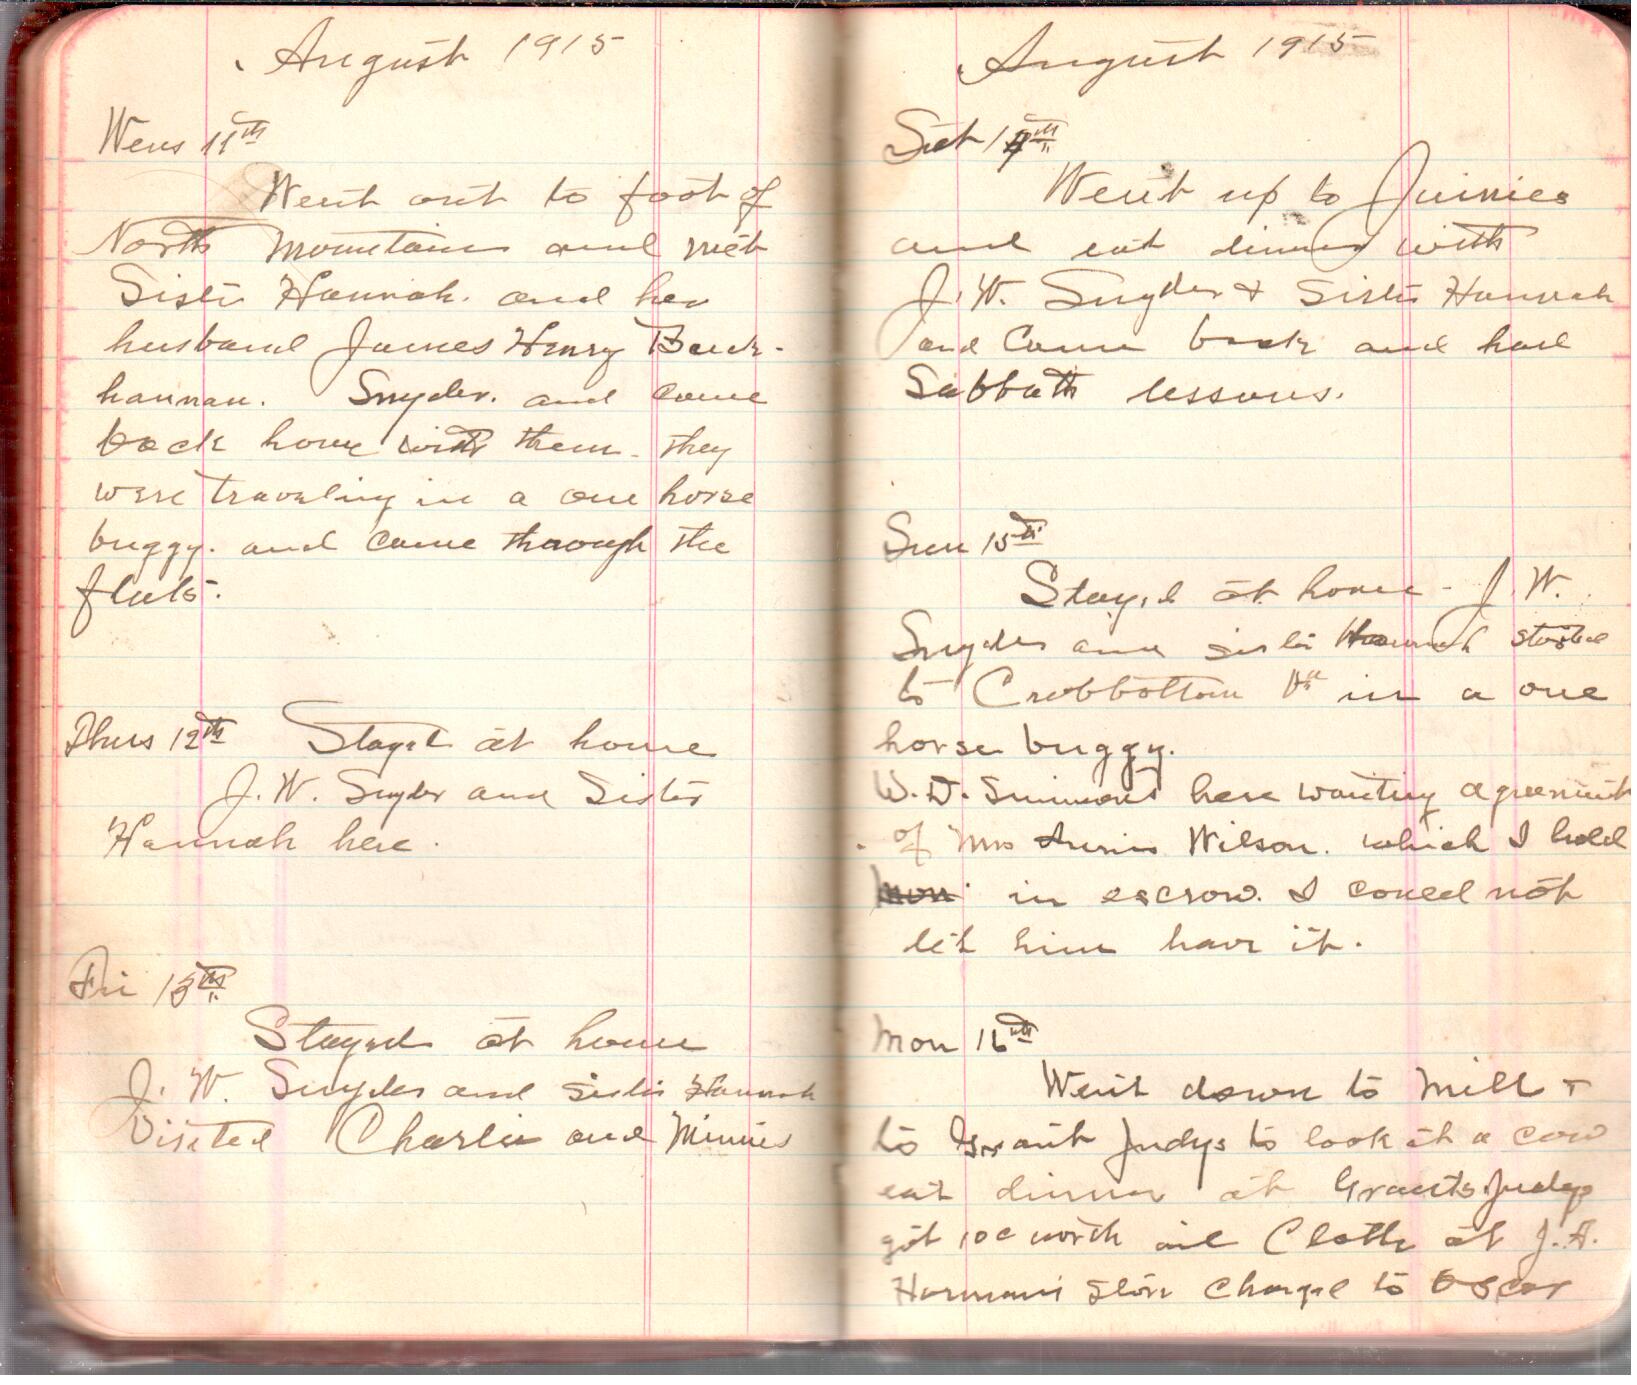 August 1915
Wens 11th
Went out to foot of
North Mountain and met
Sister Hannah. and her
husband James Henry Buck-
hannan. Snyder. and came
back home with them. they
were traveling in a one horse
buggy. and came through the
flats.
Thurs 12th Stayed at home
J. W. Snyder and Sister
Hannah here.
Fri 13th
Stayed at home
J. W. Snyder and Sister Hannah
visited Charlie and Minnies
August 1915
Sat 14th
Went up to
and eat dinner with
J. W. Snyder & Sister Hannah
and came back and had
Sabbath lessons.
Sun 15th
Stayed at home - J. W.
Snyder and sister Hannah started
to Crabbottom Va in a one
horse buggy.
W. D. Simmons here wanting agreement
of Mrs Annie Wilson. which I hold
in escrow. I could not
let him have it.
Mon 16th
Went down to Mill &
to Grant Judys to look at a cow
eat dinner at Grants Judys
got 10c worth oil Cloth at J. A.
Harmans Store Charged to Oscar